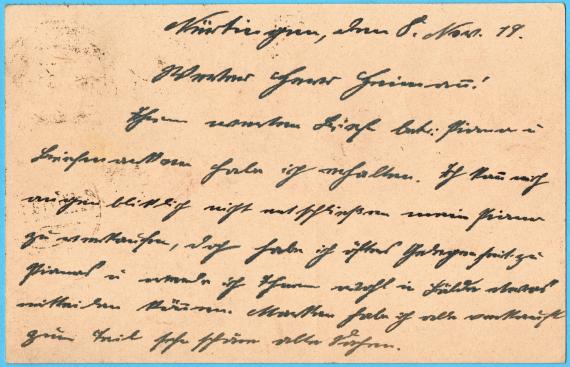 Nürtingen, den 8. Nov. 19.
Werter Herr Heimañ!
Ihren werten Brief betr. Piano u
Briefmarken habe ich erhalten. Ich kañ mich
augenblicklich nicht entschließen mein Piano
zu verkaufen, doch habe ich öfters Gelegenheit zu
Pianos u werde ich Ihnen wohl in Bälde etwas
mitteilen köñen. Marken hab ich alle verkauft
zum Teil sehr schöne alte Sachen.